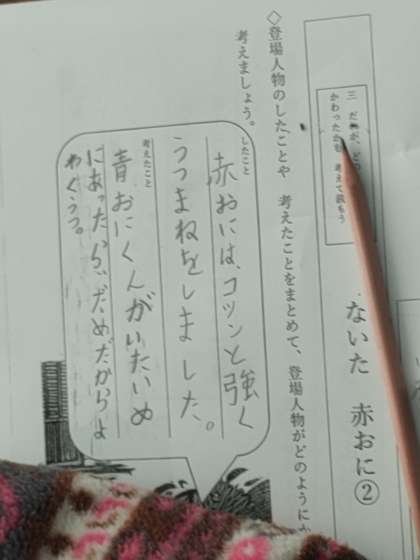 ないた 赤おに②
三 だれが、どの
かわったかを 考えて読もう
◇登場人物のしたことや 考えたことをまとめて、登場人物がどのようにか
考えましょう。
したこと
赤おには、コツンと強く
うつまねをしました。
考えたこと
青おにくんがいたいめ
にあったら、だめだからよ
わくうつ。